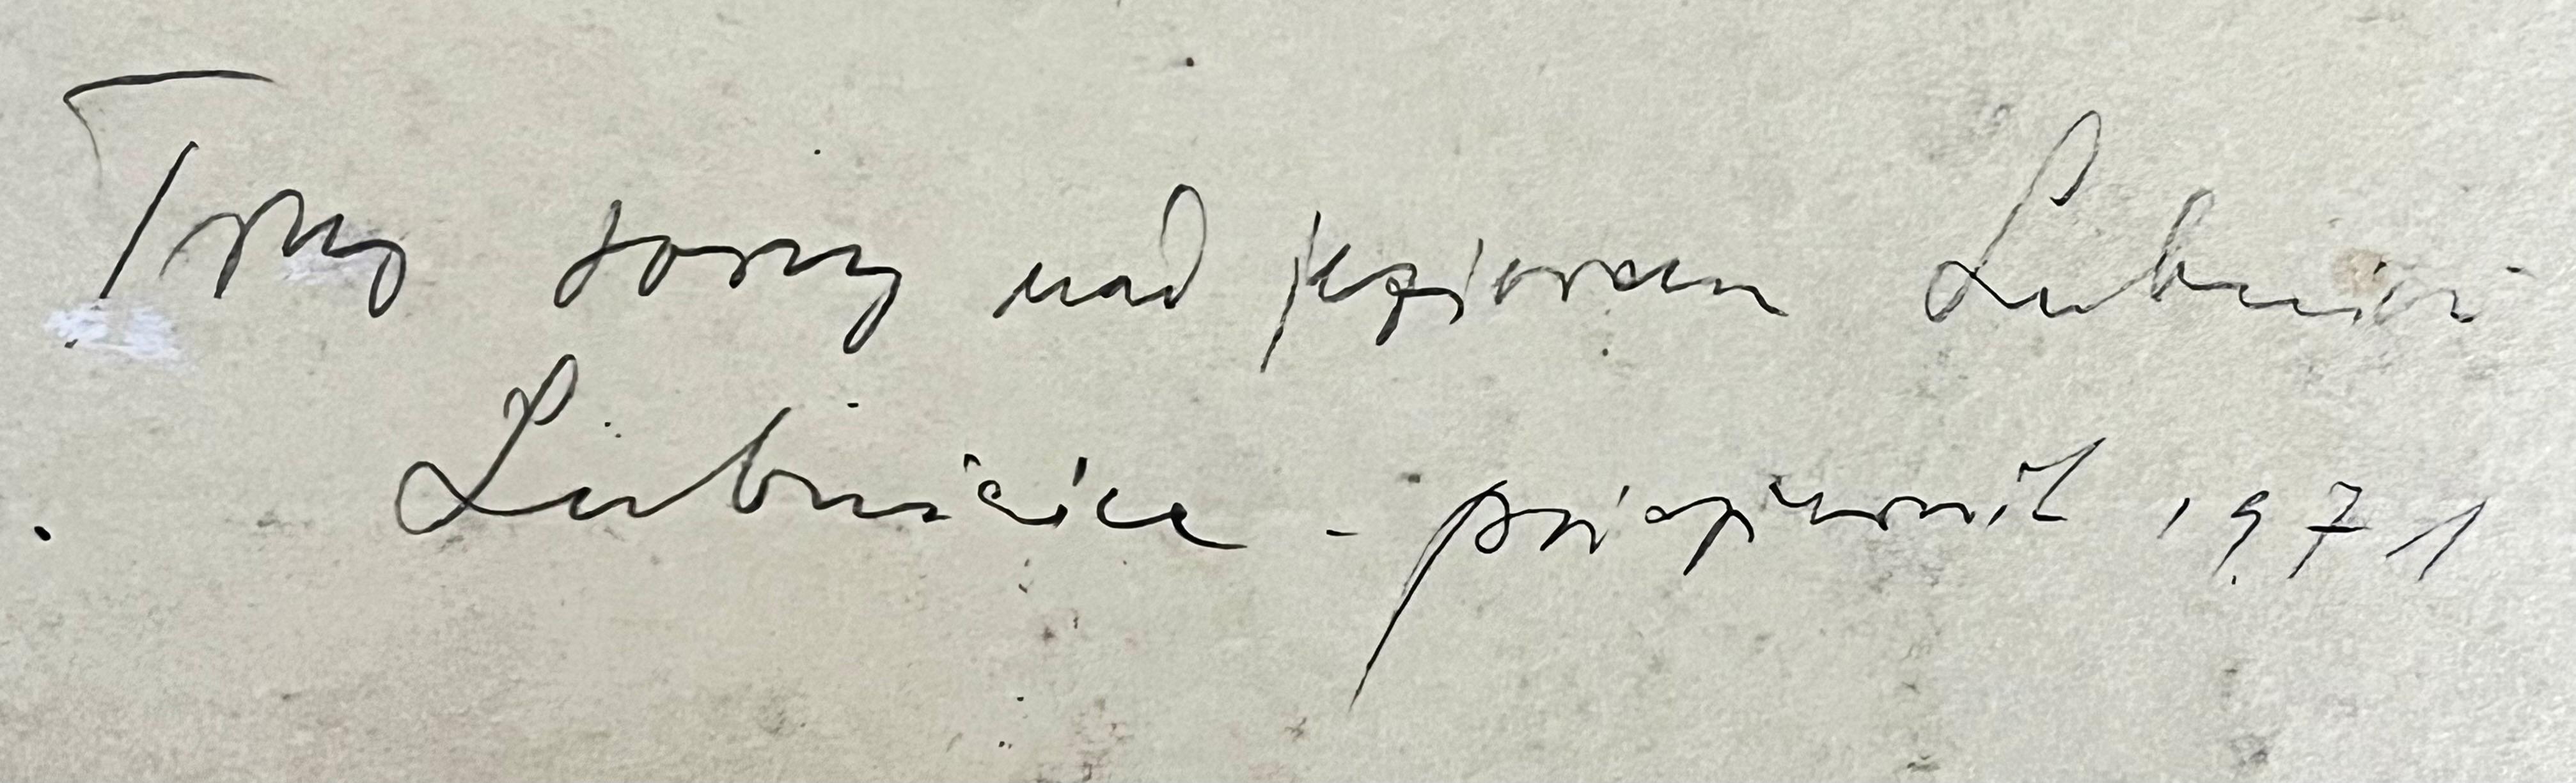 Trzy sosny nad jeziorem Lubniewsko
Lubniewice - październik 1971